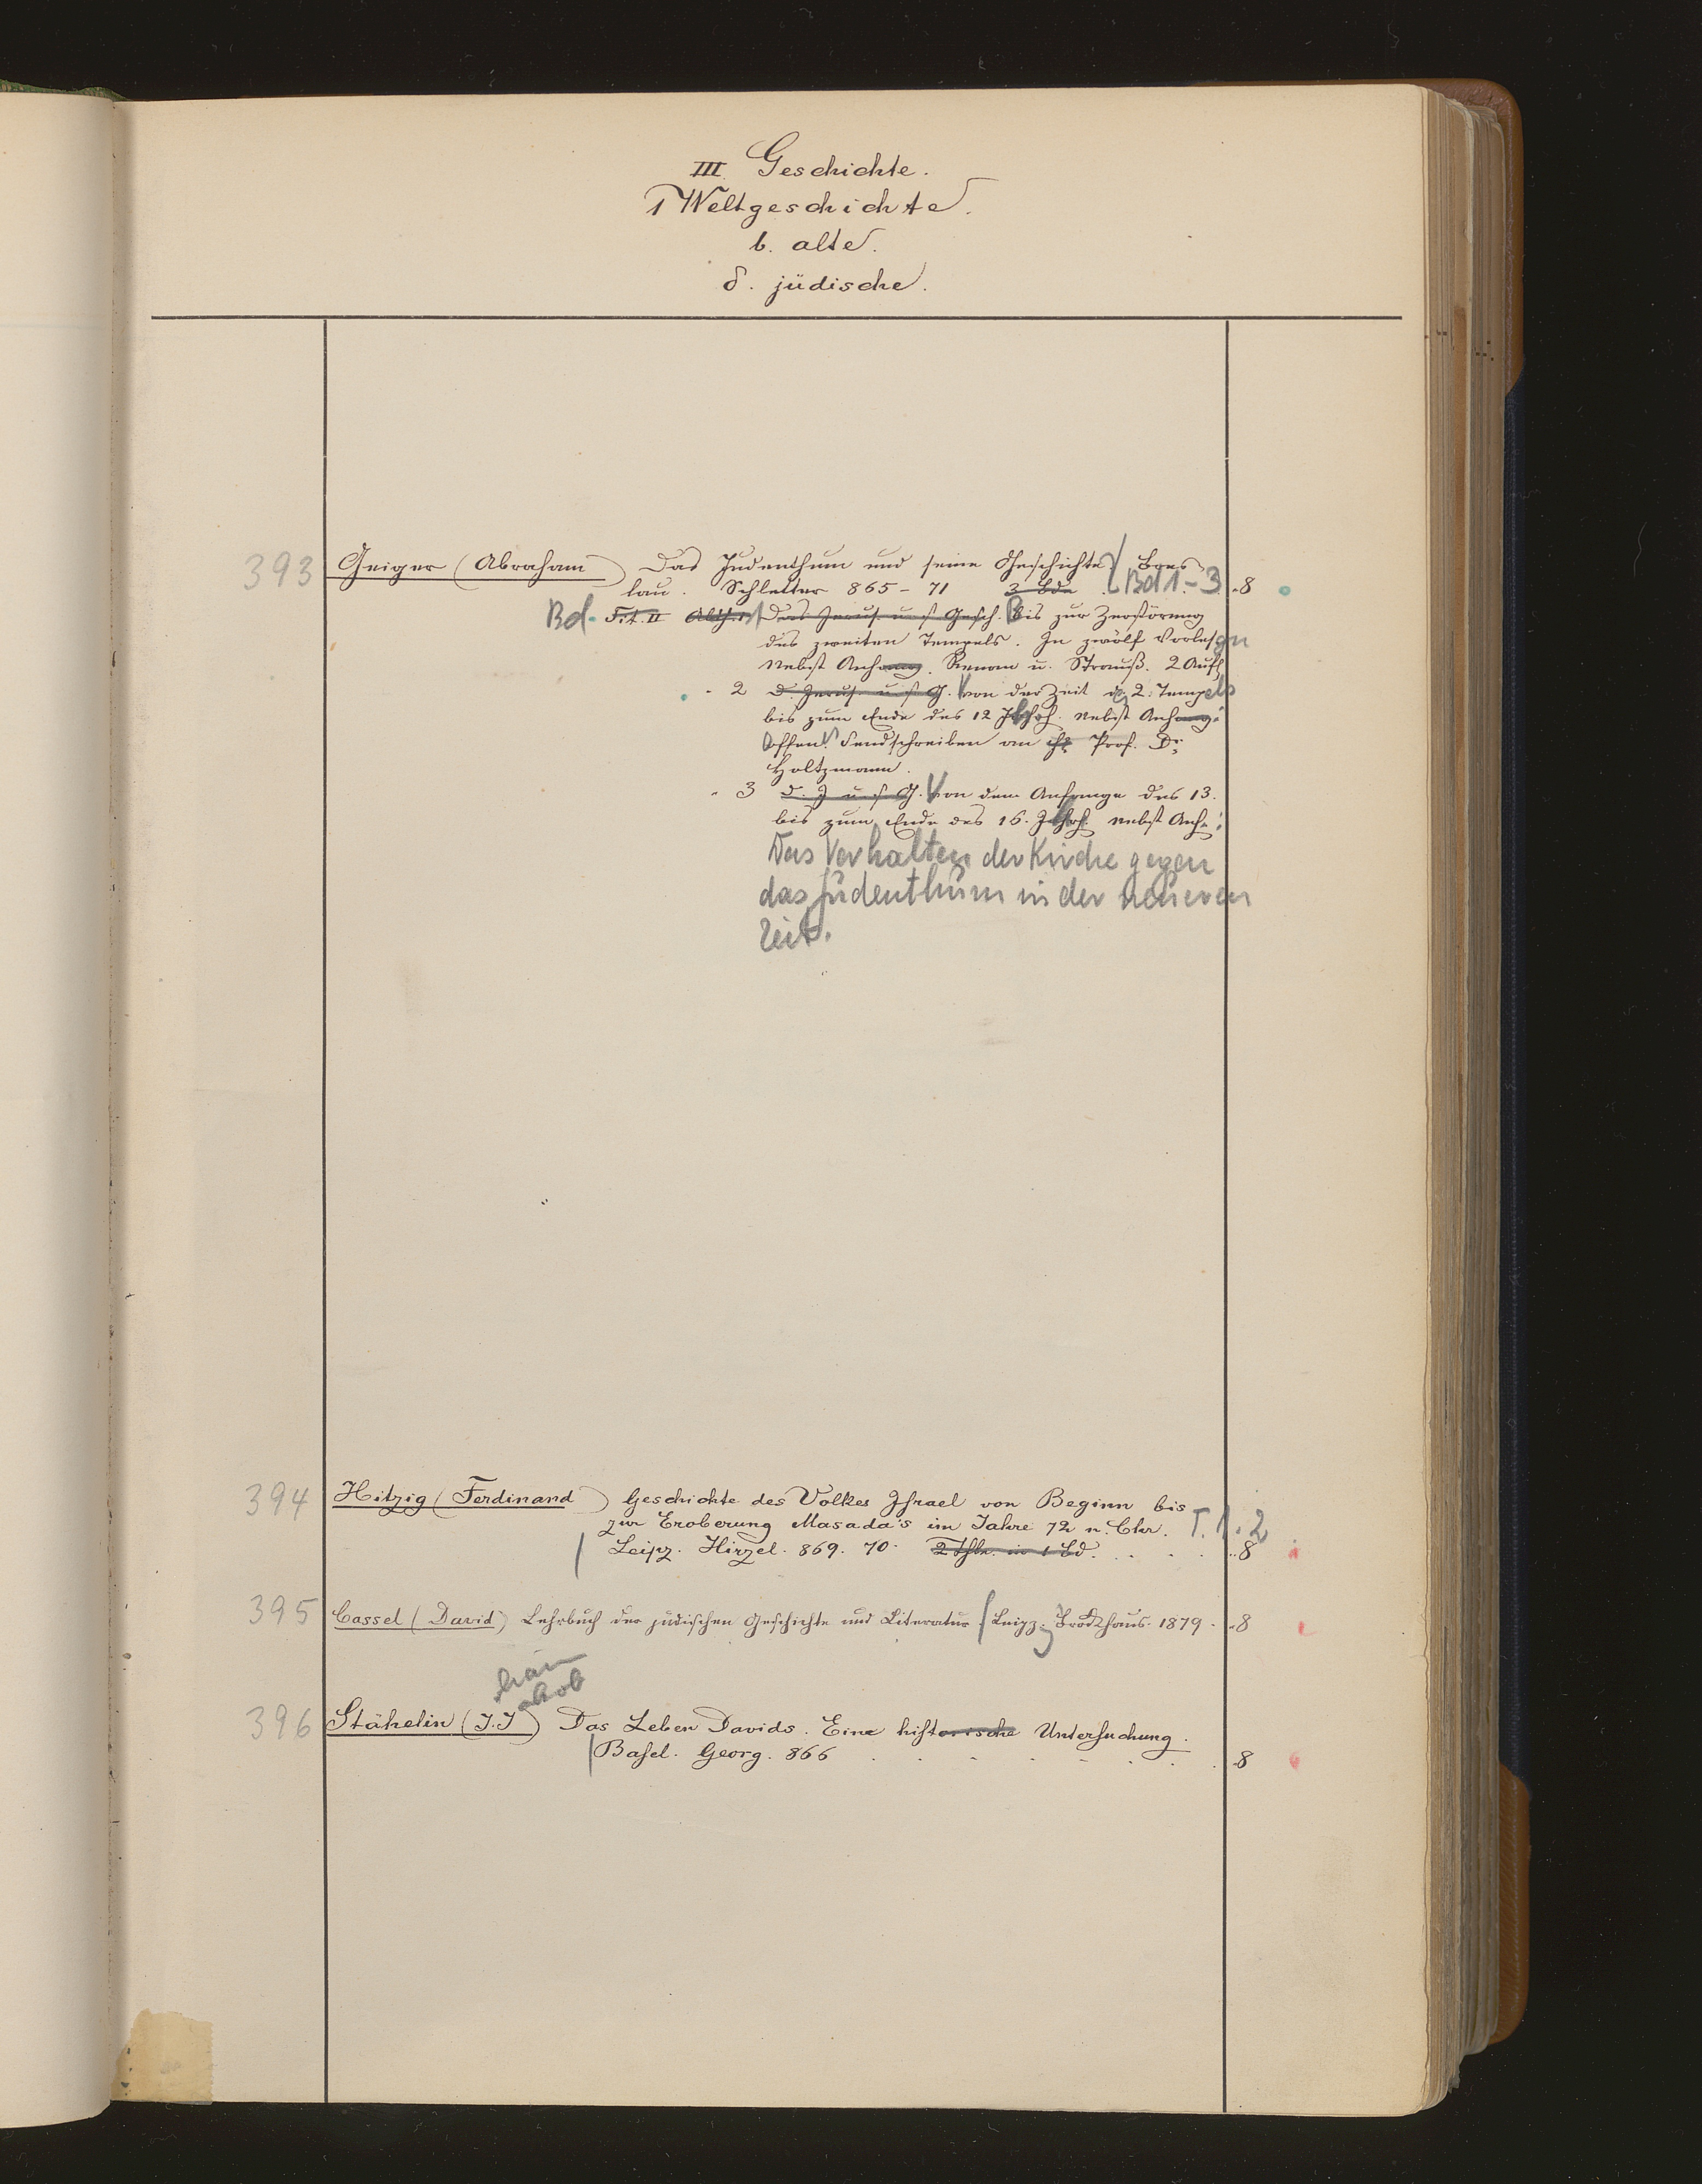 III. Geschichte.
1 Weltgeschichte.
b. alte.
δ. jüdische.
393 Geiger (Abraham) Das Judenthum und seine Geschichte Bres
lau. Schletter 865-71 3 Bde. Bd 1.-3 8
Bd. Tit. II Abth. 1 Das Jerus. u. s. Gesch. Bis zur Zerstörung
des zweiten Tempels. In zwölf Vorlesgn
Nebst Anhang. Renan u. Strauß. 2 Aufl
- 2 D. Jerus. u. s. G. Von der Zeit d. 2. Tempels
bis zum Ende des 12 Jhrh. Nebst Anhang:
Offen. Sendschreiben an H. Prof. Dr.
Holtzmann.
" 3 D. J u. s. G. Von dem Anfange des 13.
bis zum Ende des 16. Jhrh. Nebst Anh.:
Das Verhalten der Kirche gegen
das Judenthum in der neueren
Zeit.
394 Hitzig (Ferdinand) Geschichte des Volkes Israel von Beginn bis
zur Eroberung Masada's im Jahre 72 n. Chr. T. 1. 2
Leipz. Hirzel. 869. 70. 2 Thle. in 1 Bd. 8
395 Cassel (David) Lehrbuch der jüdischen Geschichte und Literatur. Leipz. Brockhaus. 1879. 8
akob
396 Stähelin (J. J) Das Leben Davids. Eine historische Untersuchung.
Basel. Georg. 866 8